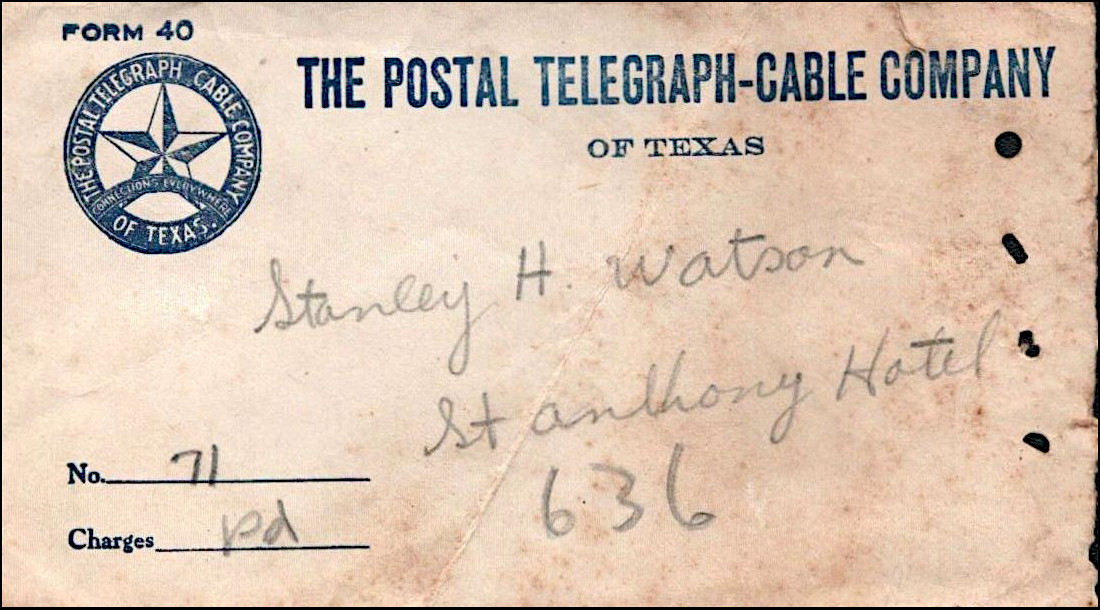 FORM 40
THE POSTAL TELEGRAPH CABLE COMPANY
CONNECTIONS EVERYWHERE
OF TEXAS.
THE POSTAL TELEGRAPH-CABLE COMPANY
OF TEXAS
Stanley H. Watson
St anthony Hotel
636
No. 71
Charges pd